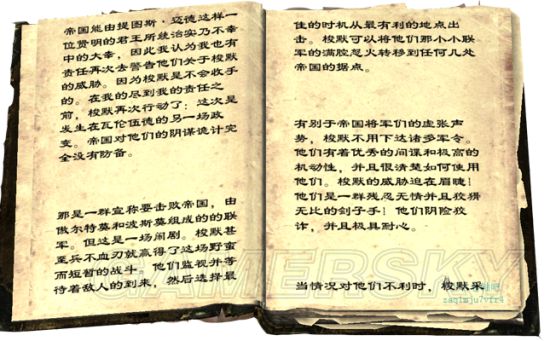 帝国能由提图斯·迈德这样一
位贤明的君王所统治实乃不幸
中的大幸，因此我认为我也有
责任再次去警告他们关于梭默
的威胁。因为梭默是不会收手
的。在我的尽到我的责任之
前，梭默再次行动了；这次是
发生在瓦伦伍德的另一场政
变。帝国对他们的阴谋诡计完
全没有防备。
那是一群宣称要击败帝国，由
傲尔特莫和波斯莫组成的的联
军。但这是一场闹剧。梭默甚
至兵不血刃就赢得了这场野蛮
而短暂的战斗。他们监视并等
待着敌人的到来，然后选择最
佳的时机从最有利的地点出
击。梭默可以将他们那小小联
军的满腔忿火转移到任何几处
帝国的据点。
有别于帝国将军们的虚张声
势，梭默不用下达诸多军令。
他们有着优秀的间谍和极高的
机动性，并且很清楚如何使用
他们。梭默的威胁迫在眉睫！
他们是一群残忍无情并且狡猾
无比的刽子手！他们阴险狡
诈，并且极具耐心。
当情况对他们不利时，梭默采
GAMERSKY
zaq1mju7vfr4